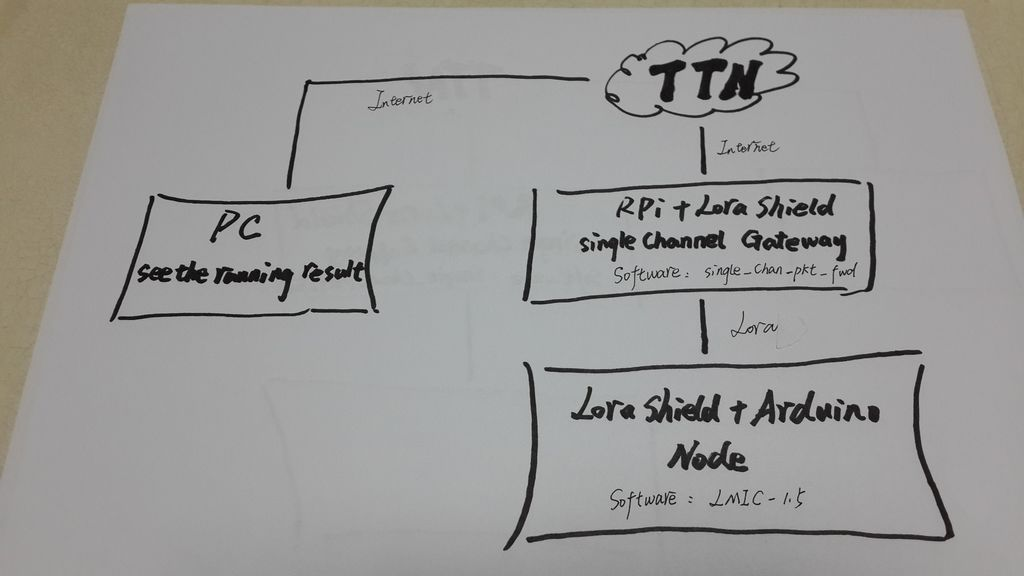 TTN
Internet
Internet
PC
see the running result
RPi + Lora Shield
single Channel Gateway
Software: single_chan_pkt_fwd
Lora
Lora Shield + Arduino
Node
Software: LMIC-1.5